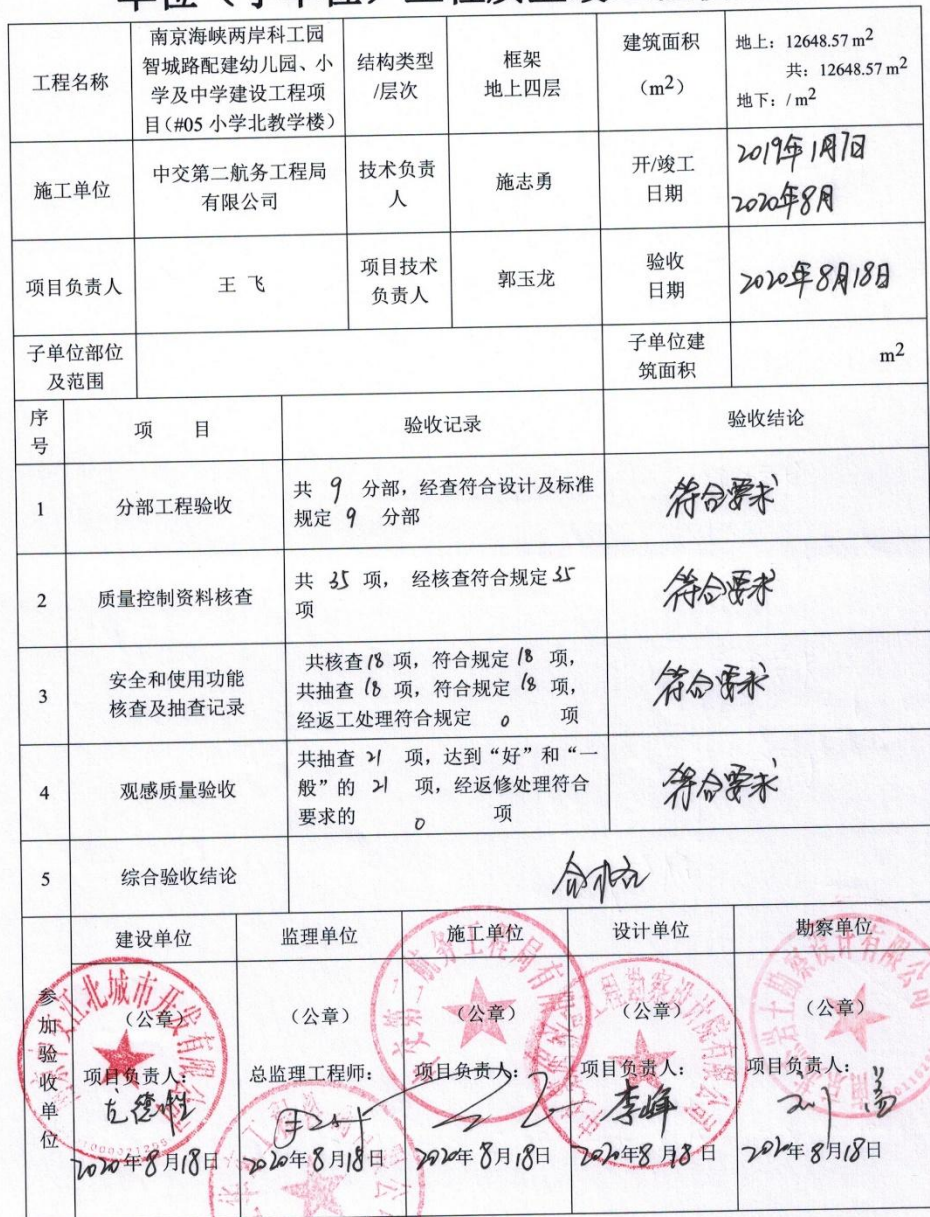 工程名称
南京海峡两岸科工园
智城路配建幼儿园、小
学及中学建设工程项
目(#05 小学北教学楼)
结构类型
/层次
框架
地上四层
建筑面积
(m²)
地上: 12648.57 m²
共: 12648.57 m²
地下: / m²
施工单位
中交第二航务工程局
有限公司
技术负责
人
施志勇
开/竣工
日期
2019年1月7日
2020年8月
项目负责人
王 飞
项目技术
负责人
郭玉龙
验收
日期
2020年8月18日
子单位部位
及范围
子单位建
筑面积
m²
序
号
项 目
验收记录
验收结论
1
分部工程验收
共 9 分部,经查符合设计及标准
规定 9 分部
符合要求
2
质量控制资料核查
共 35 项, 经核查符合规定 35
项
符合要求
3
安全和使用功能
核查及抽查记录
共核查 18 项,符合规定 18 项,
共抽查 18 项,符合规定 18 项,
经返工处理符合规定 0 项
符合要求
4
观感质量验收
共抽查 21 项,达到“好”和“一
般”的 21 项,经返修处理符合
要求的 0 项
符合要求
5
综合验收结论
合格
参
加
验
收
单
位
建设单位
(公章)
项目负责人:
2020年8月18日
监理单位
(公章)
总监理工程师:
2020年8月18日
施工单位
(公章)
项目负责人:
2020年8月18日
设计单位
(公章)
项目负责人:
李峰
2020年8月18日
勘察单位
(公章)
项目负责人:
2020年8月18日